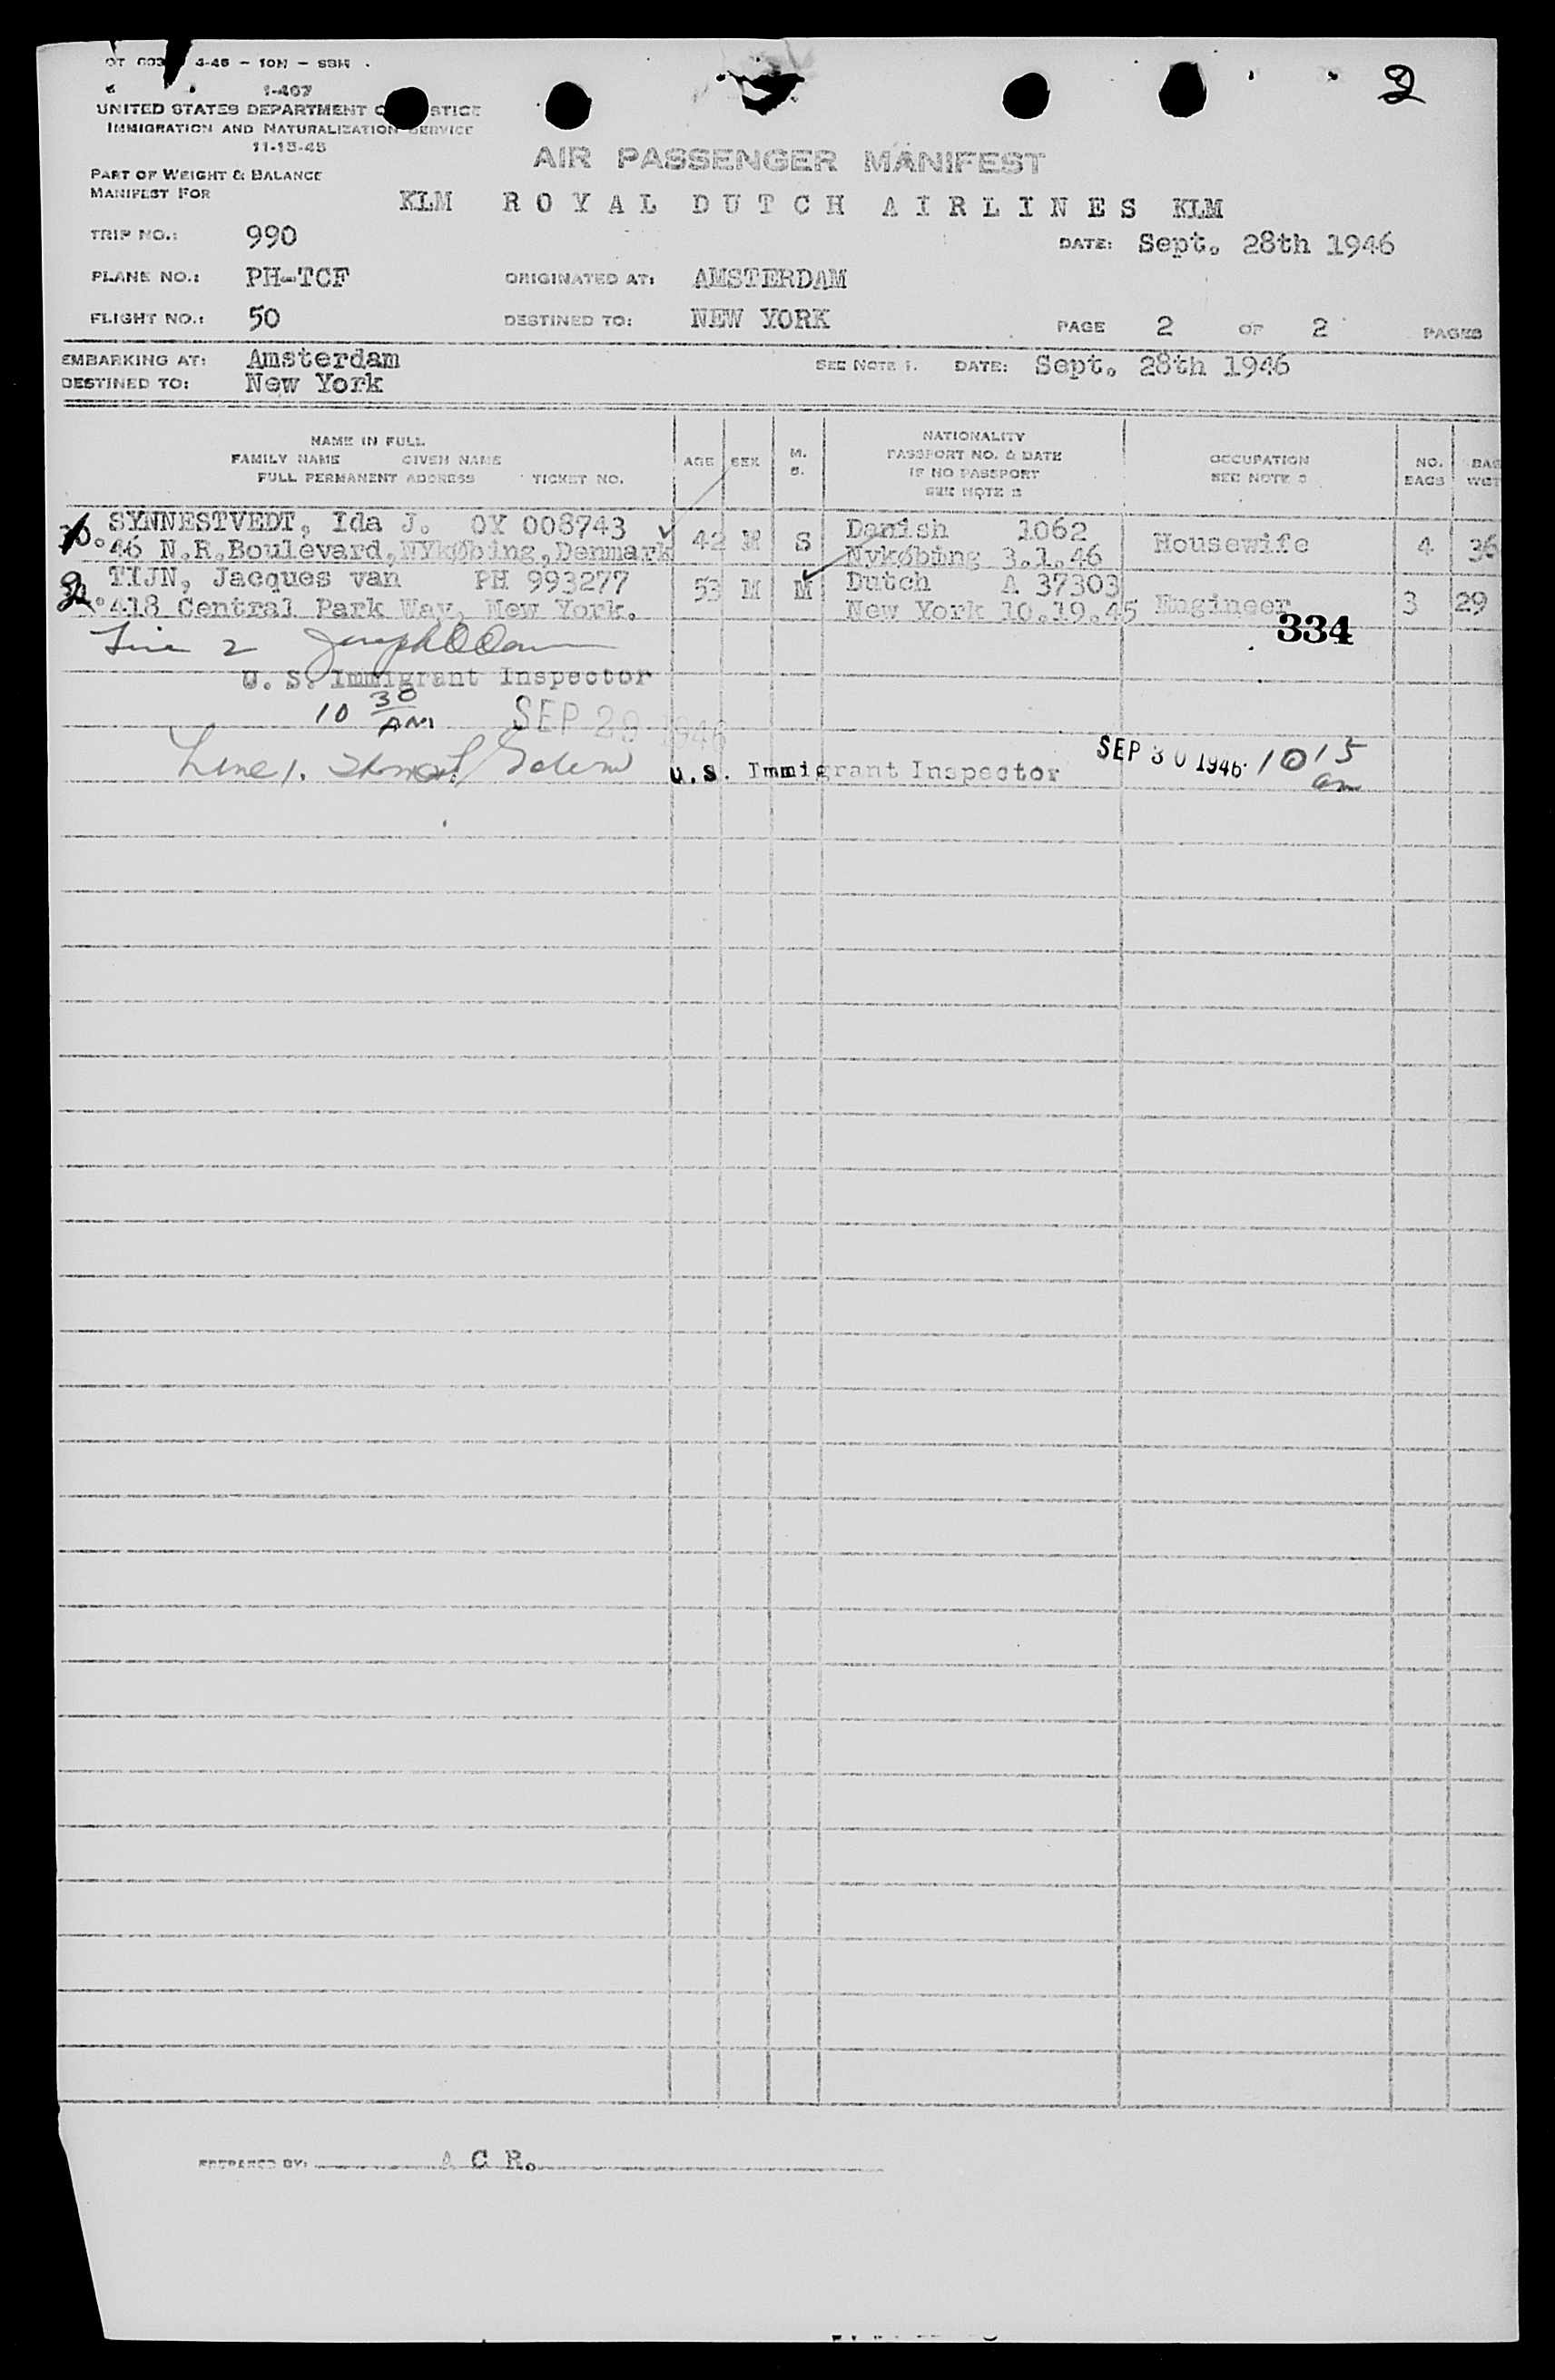 4-46 - 10M - SBM
2
1-467
UNITED STATES DEPARTMENT
IMMIGRATION AND NATURALIZATION SERVICE
11-15-45
AIR PASSENGER MANIFEST
PART OF WEIGHT & BALANCE
MANIFEST FOR
KLM ROYAL DUTCH AIRLINES KLM
TRIP NO.: 990 DATE: Sept. 28th 1946
PLANE NO.: PH-TCF ORIGINATED AT: AMSTERDAM
FLIGHT NO.: 50 DESTINED TO: NEW YORK PAGE 2 OF 2 PAGES
EMBARKING AT: Amsterdam SEE NOTE 1. DATE: Sept. 28th 1946
DESTINED TO: New York
NAME IN FULL
FAMILY NAME GIVEN NAME
FULL PERMANENT ADDRESS TICKET NO. AGE SEX M. S. NATIONALITY PASSPORT NO. & DATE IF NO PASSPORT SEE NOTE 2 OCCUPATION SEE NOTE 3 NO. BAGS BAG WGT
SYNNESTVEDT, Ida J. OY 008743 42 M S Danish 1062 Housewife 4 36
46 N.R.Boulevard,NYkøbing,Denmark Nykøbing 3.1.46
TIJN, Jacques van PH 993277 53 M M Dutch A 37303 Engineer 3 29
418 Central Park Way, New York. New York 10.19.45
334
Line 2
U. S. Immigrant Inspector
10 30 AM SEP 29 1946
Line 1. U.S. Immigrant Inspector SEP 30 1946 10 15 am
PREPARED BY: A C R.